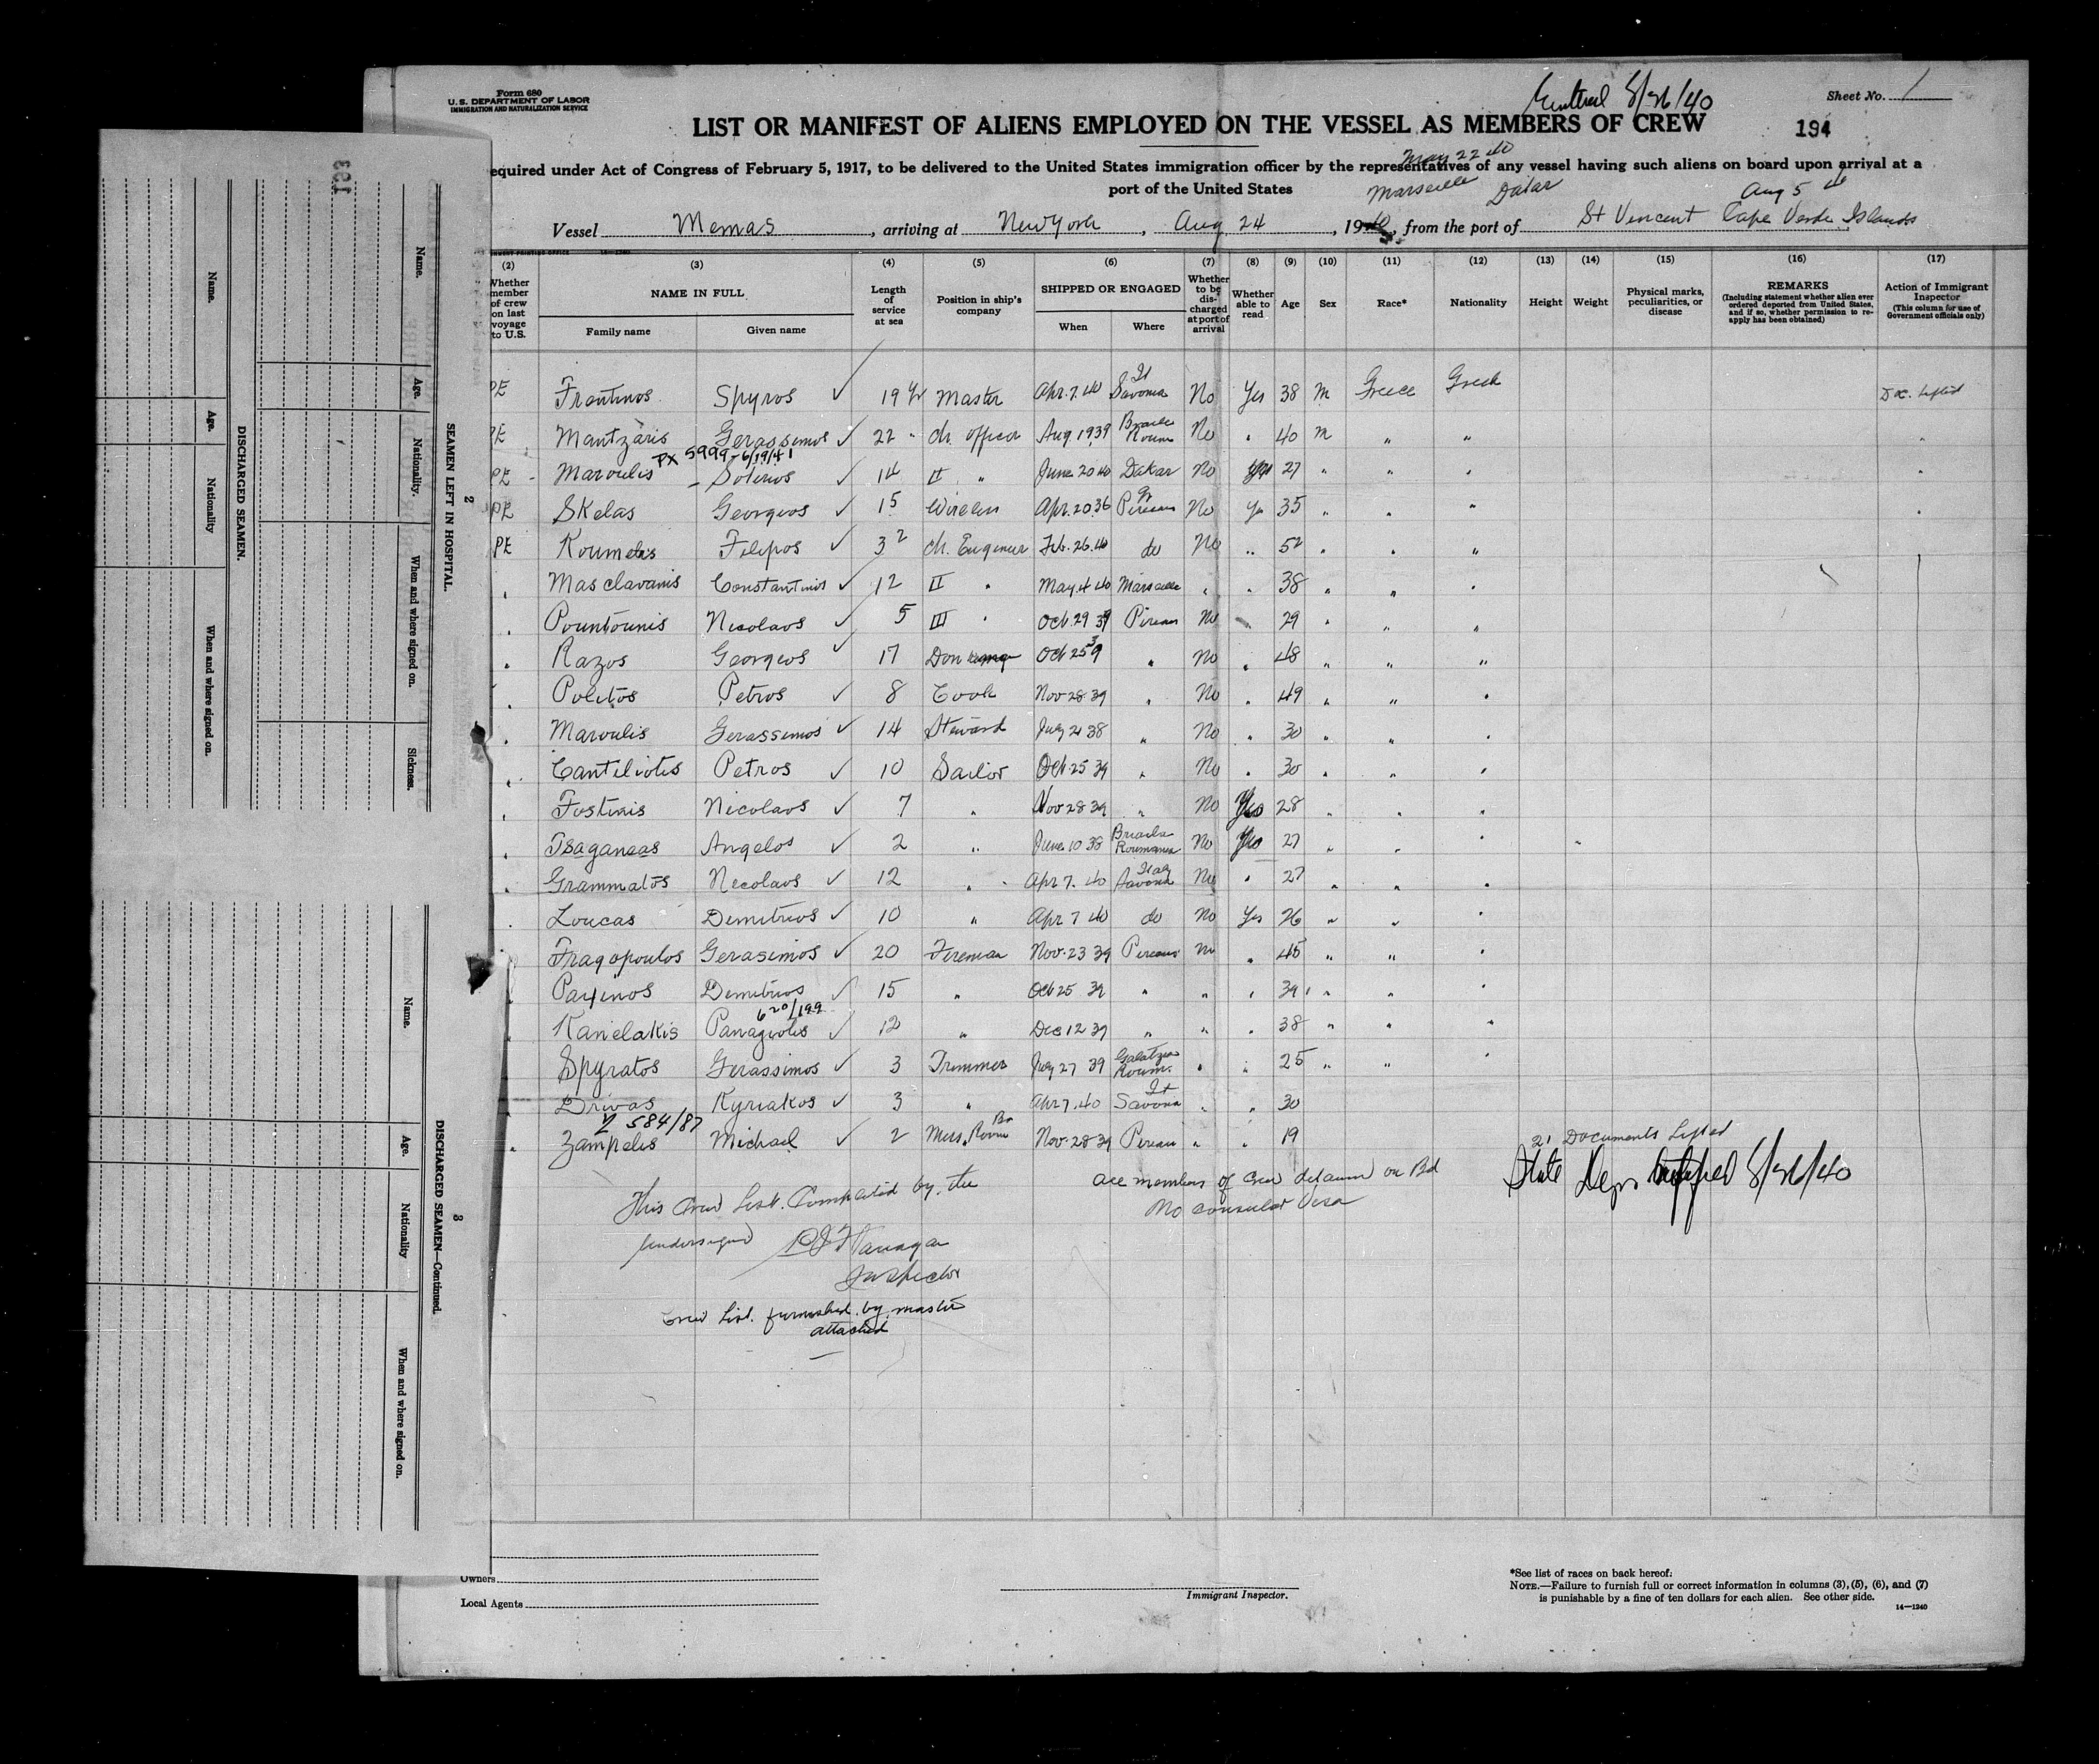 Form 680
U.S. DEPARTMENT OF LABOR
IMMIGRATION AND NATURALIZATION SERVICE
8/26/40
Sheet No. 1
LIST OR MANIFEST OF ALIENS EMPLOYED ON THE VESSEL AS MEMBERS OF CREW
194
May 22 40
equired under Act of Congress of February 5, 1917, to be delivered to the United States immigration officer by the representatives of any vessel having such aliens on board upon arrival at a
port of the United States
Marseille Dakar Aug 5
Vessel Memas, arriving at New York, Aug 24, 1940, from the port of St Vincent Cape Verde Islands
(2) (3) (4) (5) (6) (7) (8) (9) (10) (11) (12) (13) (14) (15) (16) (17)
Whether member of crew on last voyage to U.S.
NAME IN FULL
Family name Given name
Length of service at sea
Position in ship's company
SHIPPED OR ENGAGED
When Where
Whether to be discharged at port of arrival
Whether able to read
Age
Sex
Race*
Nationality
Height
Weight
Physical marks, peculiarities, or disease
REMARKS
(Including statement whether alien ever ordered deported from United States, and if so, whether permission to re-apply has been obtained)
Action of Immigrant Inspector
(This column for use of Government officials only)
PE Frantinos Spyros ✓ 19 yr Master Apr. 7. 40 It Savona No Yes 38 m Greece Greek Doc. Lifted
PE Mantzaris Gerassimos ✓ 22 " Ch officer Aug 1939 Braila Roum No " 40 m " "
PX 5999-6/19/41
PE Maroulis Soterios ✓ 14 II " June 20 40 Dakar No Yes 27 " " "
PE Skelas Georgios ✓ 15 Wireless Apr. 20 36 Gr Pireaus No Yes 35 " " "
PE Roumelis Filipos ✓ 32 Ch. Engineer Feb. 26. 40 do No " 52 " " "
" Masclavanis Constantinos ✓ 12 II " May. 4 40 Marseille " " 38 " " "
" Pountounis Nicolaos ✓ 5 III " Oct. 29 39 Pireaus No " 29 " " "
" Razos Georgios ✓ 17 Don Oct 25 39 " No " 48 " " "
" Politos Petros ✓ 8 Cook Nov 28 39 " No " 49 " " "
" Maroulis Gerassimos ✓ 14 Steward July 21 38 " No " 30 " " "
" Cantiliotis Petros ✓ 10 Sailor Oct. 25 39 " No " 30 " " "
" Fostinis Nicolaos ✓ 7 " Nov 28 39 " No Yes 28 " " "
" Tsaganeas Angelos ✓ 2 " June 10 38 Braila Roumania No Yes 27 " " "
" Grammatos Nicolaos ✓ 12 " Apr 7. 40 Italy Savona No " 27 " " "
" Loucas Demitrios ✓ 10 " Apr 7 40 do No Yes 26 " " "
" Fragopoulos Gerasimos ✓ 20 Fireman Nov. 23 39 Pireaus No " 45 " " "
" Payinos Demitrios ✓ 15 " Oct 25 39 " " " 39 " " "
620/199
" Kanelakis Panagiotis ✓ 12 " Dec 12 39 " " " 38 " " "
Spyratos Gerassimos ✓ 3 Trimmer July 27 39 Galatza Roum. " " 25 " " "
Drivas Kyriakos ✓ 3 " Apr 7. 40 It Savona " " 30
584/87
" Zampelis Michael ✓ 2 Mess Room Bo Nov. 28 39 Pireau " " 19
21 Documents Lifted
State Dept notified 8/26/40
This Crew List. Completed by the
undersigned
Inspector
all members of Crew detained on Bd
No Consular Visa
Crew List. furnished by master
attached
Owners
Local Agents
Immigrant Inspector.
*See list of races on back hereof.
NOTE.—Failure to furnish full or correct information in columns (3), (5), (6), and (7)
is punishable by a fine of ten dollars for each alien. See other side.
14—1240
193
2
SEAMEN LEFT IN HOSPITAL.
Name. Age. Nationality. When and where signed on. Sickness.
DISCHARGED SEAMEN.
Name. Age. Nationality When and where signed on.
3
DISCHARGED SEAMEN—Continued.
Name. Age. Nationality When and where signed on.